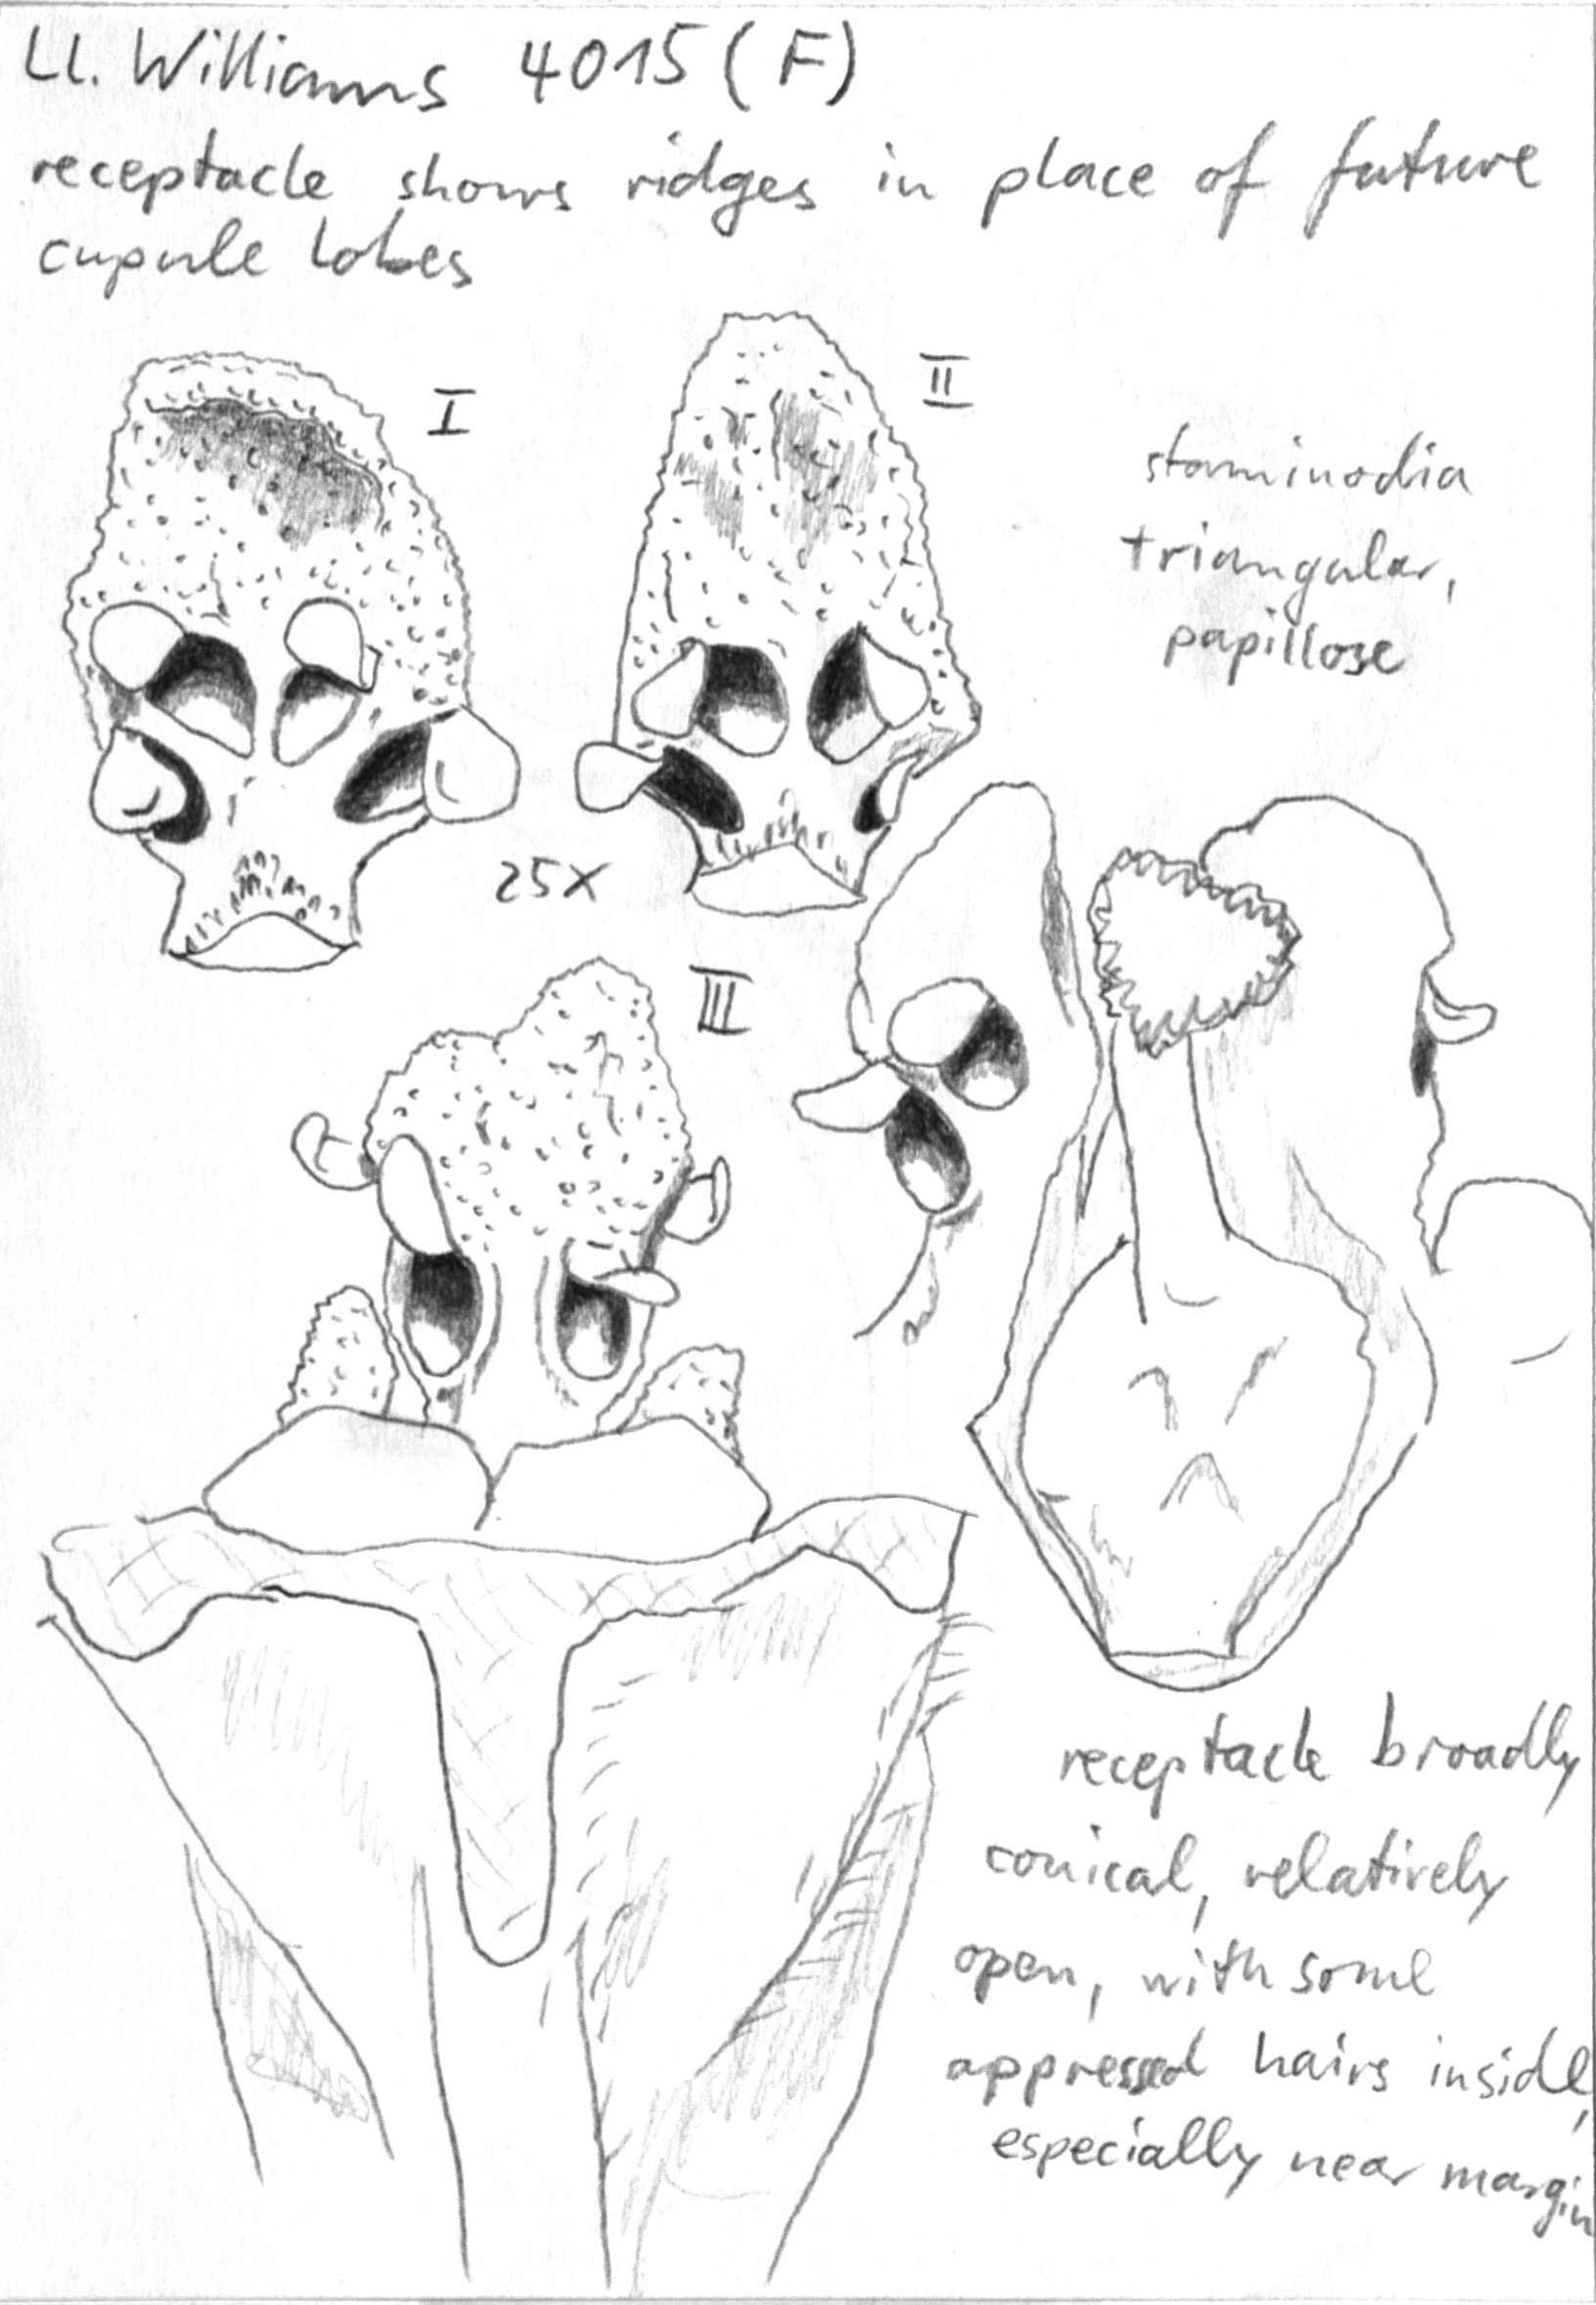 Ll. Williams 4015 (F)
receptacle shows ridges in place of future
cupule lobes
I
II
staminodia
triangular,
papillose
25x
III
receptacle broadly
conical, relatively
open, with some
appressed hairs inside,
especially near margin